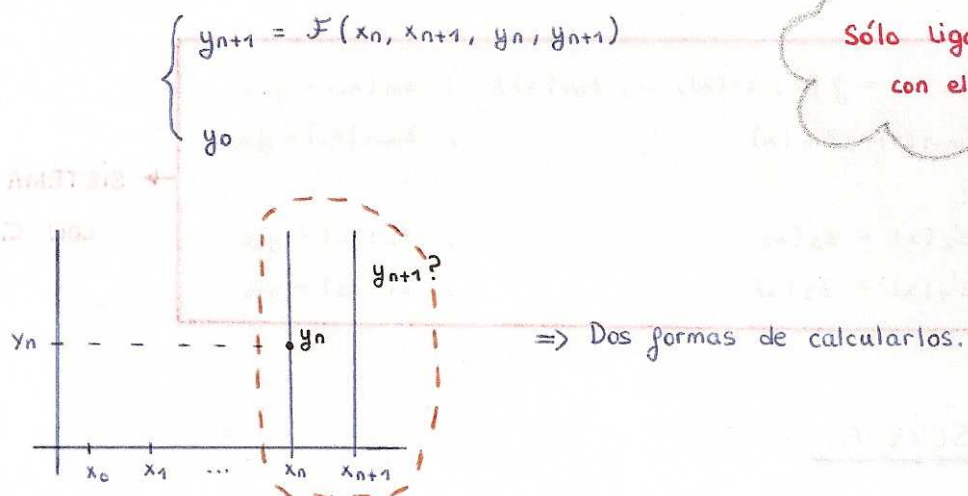 yn+1 = F(xn, xn+1, yn, yn+1)
y0
Sólo
con el
yn+1?
yn
yn
=> Dos formas de calcularlos.
x0 x1 ... xn xn+1